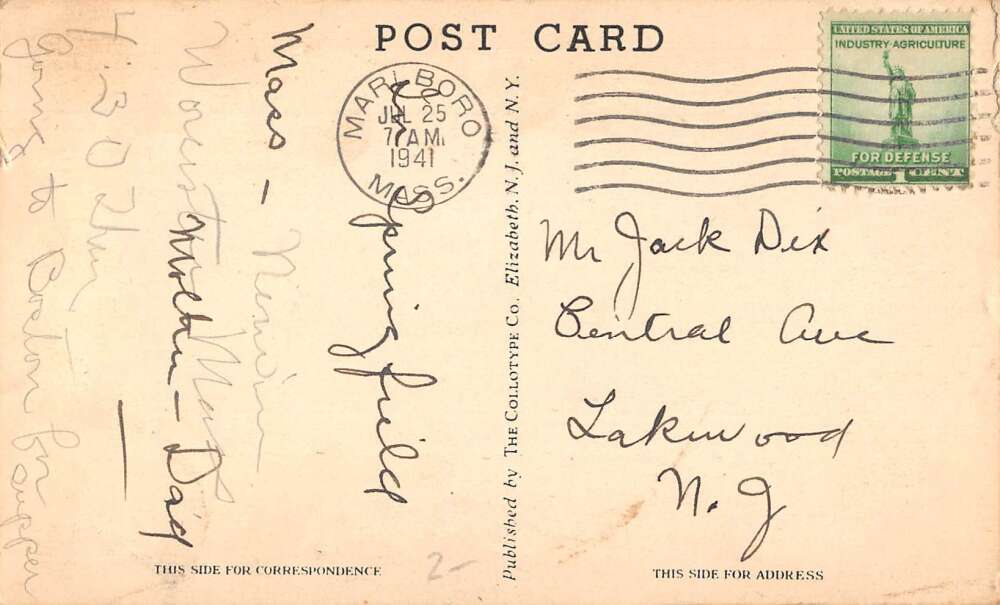 POST CARD
MARLBORO
JUL 25
7 AM
1941
MASS.
UNITED STATES OF AMERICA
INDUSTRY·AGRICULTURE
FOR DEFENSE
POSTAGE 1 CENT
Mr Jack Dix
Central Ave
Lakewood
N. J
In Springfield
Mass -
Mother - Dad
Worcester Mass
4:30 Thur
going to Boston for
supper
Published by THE COLLOTYPE CO. Elizabeth, N. J. and N. Y.
THIS SIDE FOR CORRESPONDENCE
2-
THIS SIDE FOR ADDRESS